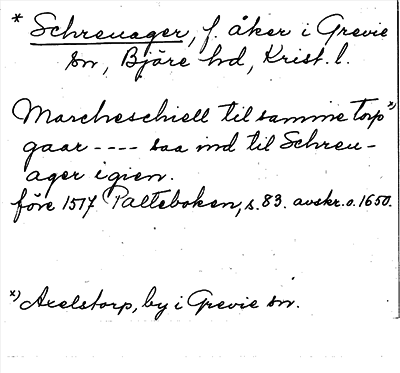 * Schreuager, f. åker i Grevie
sn, Bjäre hd, Krist. l.
Marcheschiell til samme Torp x)
gaar ---- saa ind til Schreu-
ager igien.
före 1517 Palteboken, s. 83. avskr. o. 1650.
x) Axelstorp, by i Grevie sn.